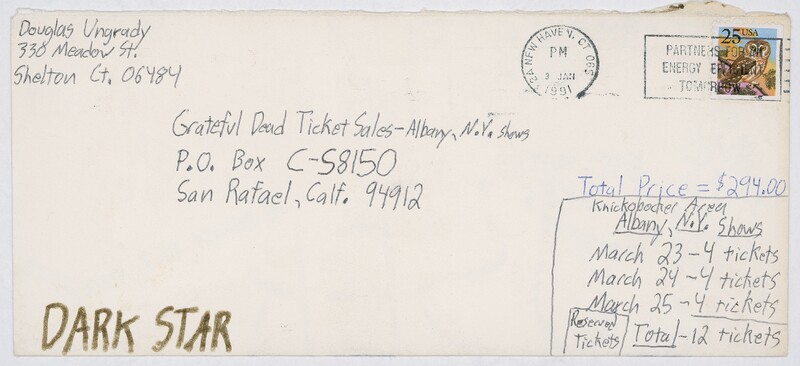 Douglas Ungrady
338 Meadow St.
Shelton Ct. 06484
NEW HAVEN, CT 065
PM
3 JAN
1991
25 USA
PARTNERS FOR AN
ENERGY EFFICIENT
TOMORROW
Grateful Dead Ticket Sales-Albany, N.Y. shows
P.O. Box C-S8150
San Rafael, Calf. 94912
Total Price = $294.00
Knickobocker Area
Albany, N.Y. Shows
March 23-4 tickets
March 24-4 tickets
March 25-4 tickets
Reserved
Tickets
Total-12 tickets
DARK STAR